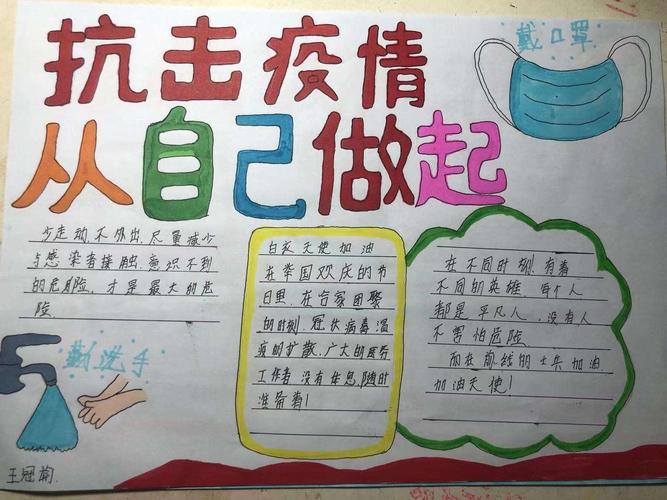 抗击疫情
从自己做起
戴口罩
少走动不外出,尽量减少
与感染者接触,意识不到
的危险,才是最大的危
险
勤洗手
白衣天使加油
在举国欢庆的节
日里,在合家团聚
的时刻,冠状病毒温
疫的扩散,广大的医务
工作者没有休息,随时
准备着!
在不同时刻,有着
不同的英雄,每个人
都是平凡人,没有人
不害怕危险
而在前线的士兵加油
加油天使!
王冠